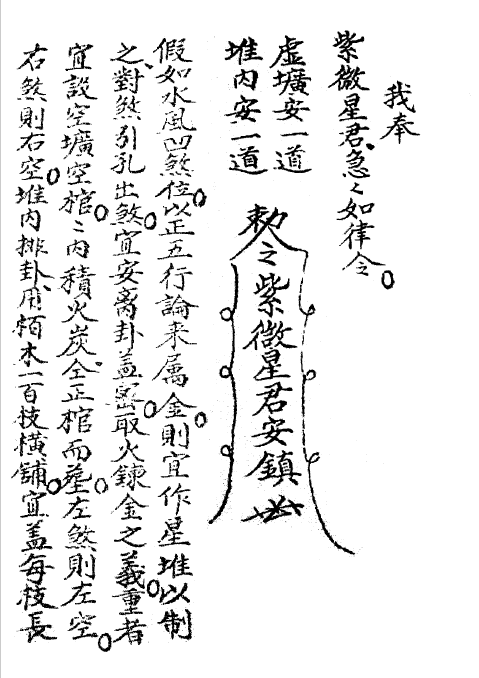 我奉
紫微星君急〻如律令
虛壙安一道
堆内安一道
勅之紫微星君安鎮
假如水風凹煞位以正五行論来属金則宜作星堆以制
之對煞引孔出煞宜安离卦盖密取火鍊金之義重者
宜設空壙空棺〻内積火炭仝正棺而塟左煞則左空
右煞則右空堆内排卦用栢木一百枝橫舖宜盖每枝長